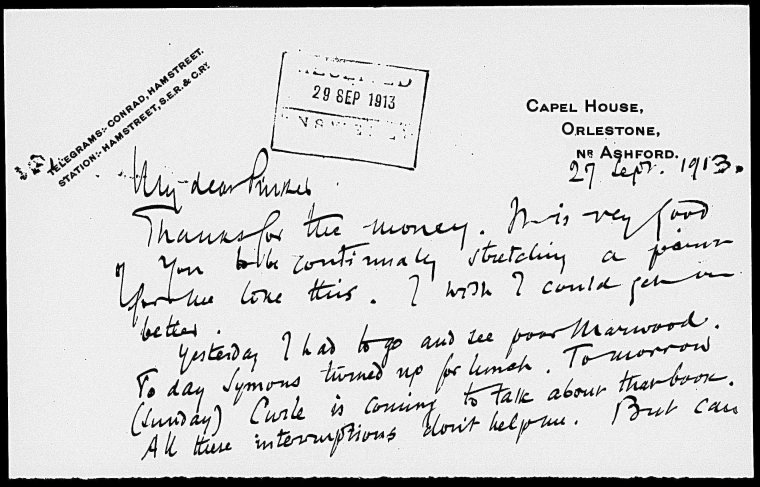 TELEGRAMS:- CONRAD, HAMSTREET.
STATION:- HAMSTREET, S.E.R. & C.RY.
RECEIVED
29 SEP 1913
CAPEL HOUSE,
ORLESTONE,
NR ASHFORD.
27 Sept. 1913.
My dear Pinker
Thanks for the money. It is very good
of you to be continually stretching a point
for me like this. I wish I could get on
better.
Yesterday I had to go and see poor Marwood.
To day Symons turned up for lunch. Tomorrow
(Sunday) Curle is coming to talk about that book.
All these interruptions don't help me. But can